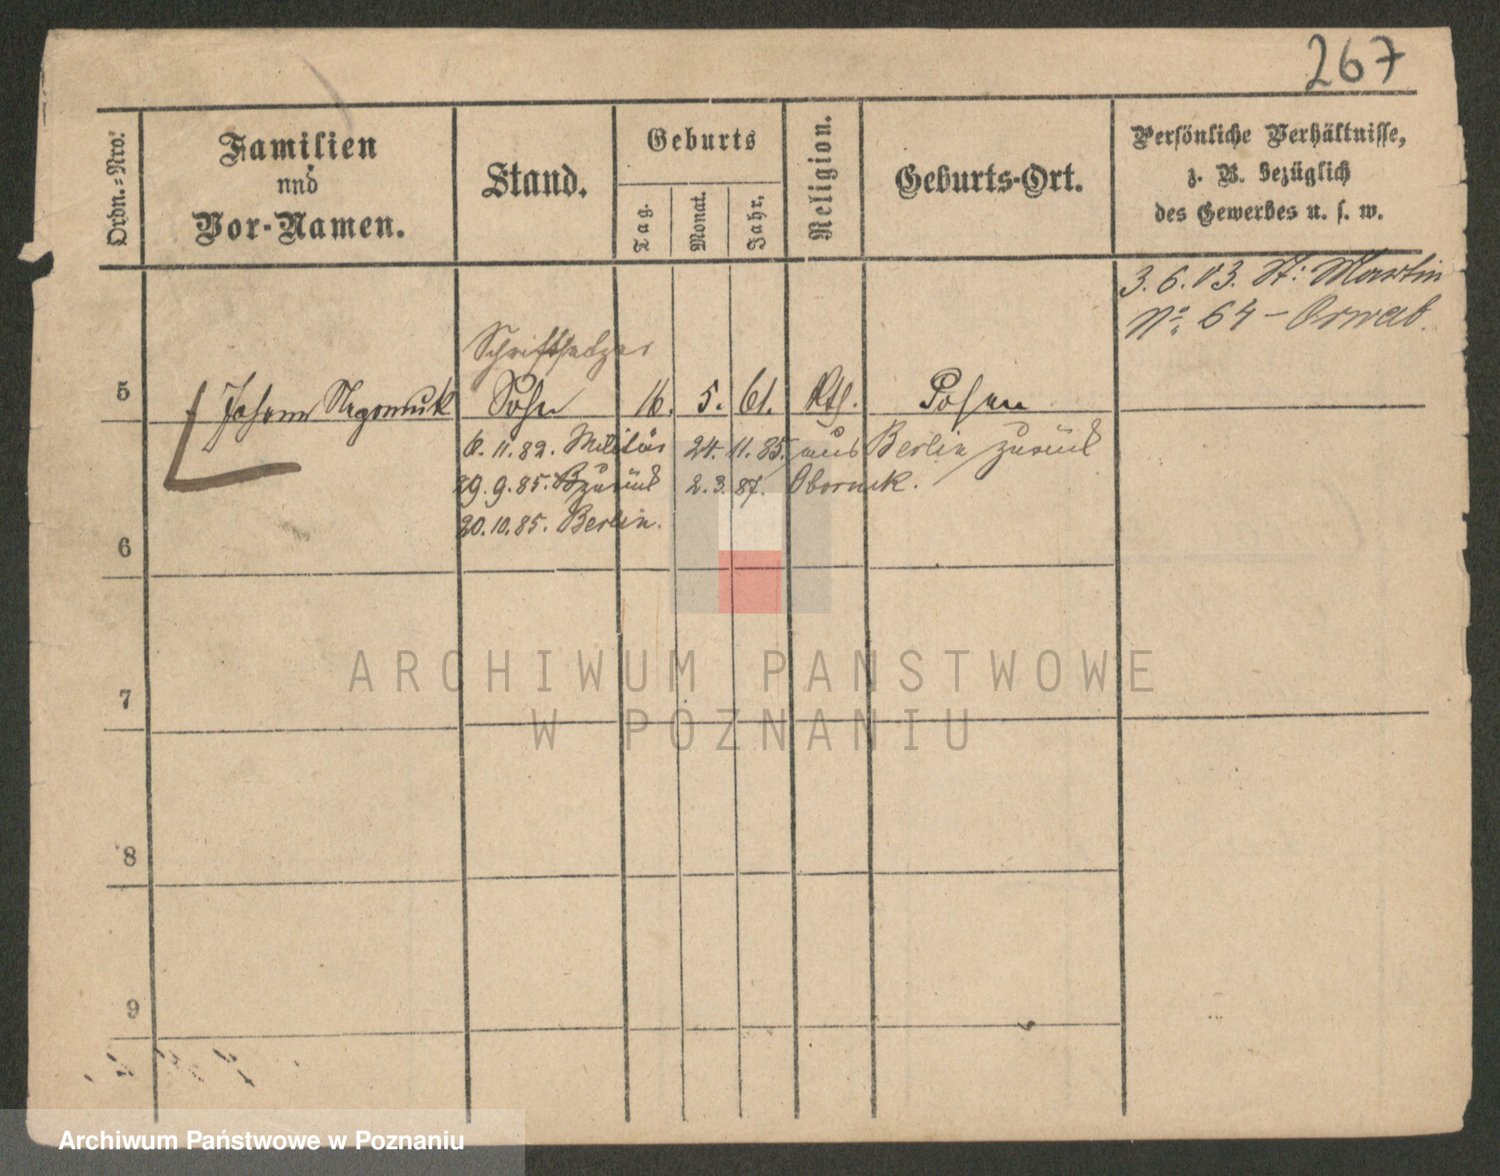 267
Ordn.=Nro.
Familien
und
Vor-Namen.
Stand.
Geburts
Tag.
Monat.
Jahr.
Religion.
Geburts-Ort.
Persönliche Verhältnisse,
z. B. bezüglich
des Gewerbes u. s. w.
3.6.03. St: Martin
No. 64 –
Schriftsetzer
5 Johann Nepomuk Sohn 16. 5. 61. Kth. Posen
11.82. Militär 24. 11. 85. aus Berlin zurück
29.9.85. zurück 2. 3. 87. Obornik.
20.10.85. Berlin.
6
7
8
9
ARCHIWUM PAŃSTWOWE
W POZNANIU
Archiwum Państwowe w Poznaniu